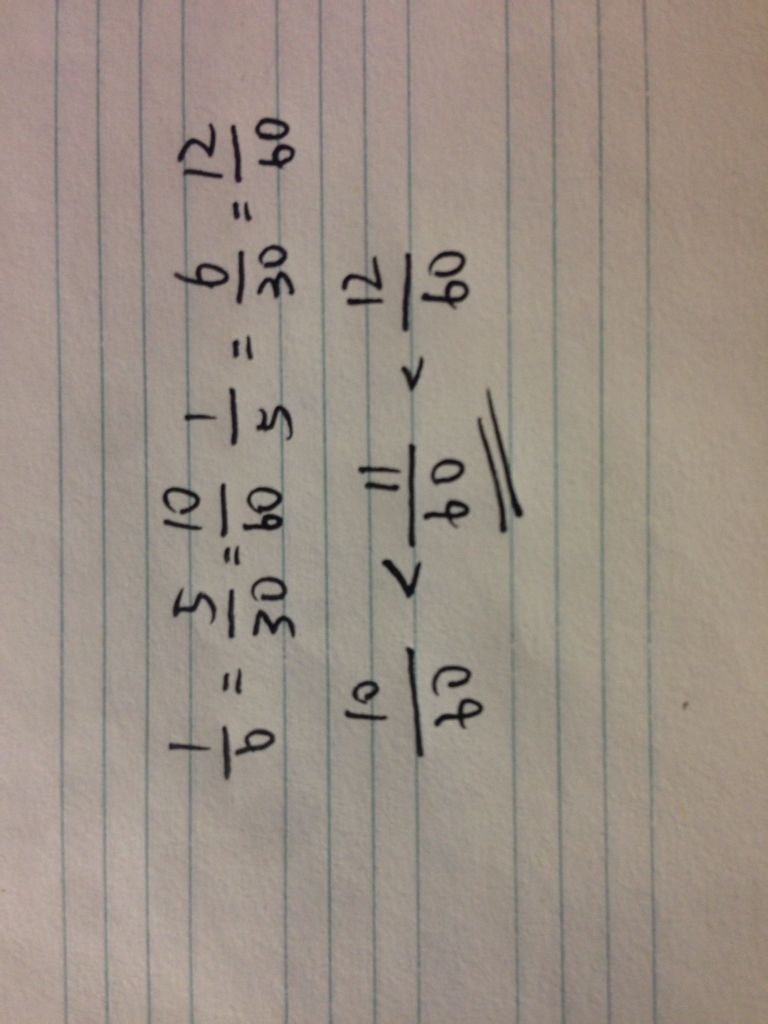 1/6 = 5/30 = 10/60 1/5 = 6/30 = 12/60
10/60 < 11/60 < 12/60